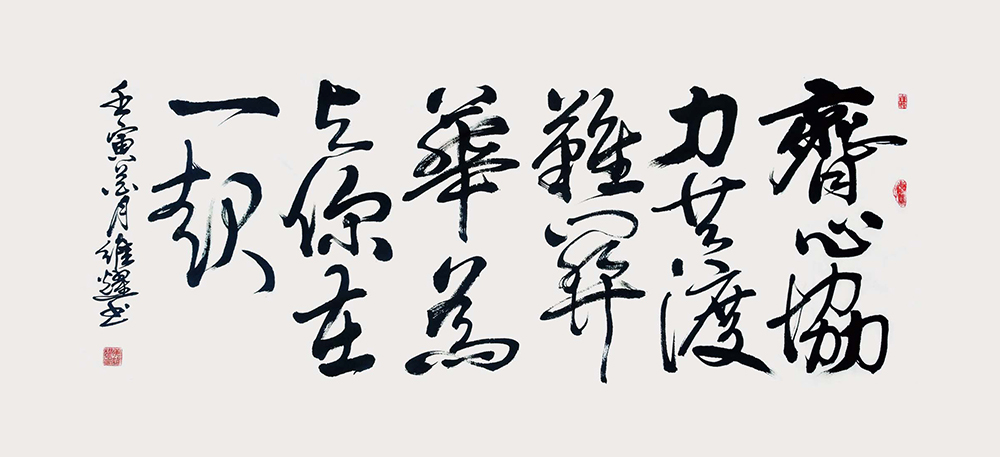 齊心協
力共渡
難關
華為
与你在
一起
壬寅荷月維耀书